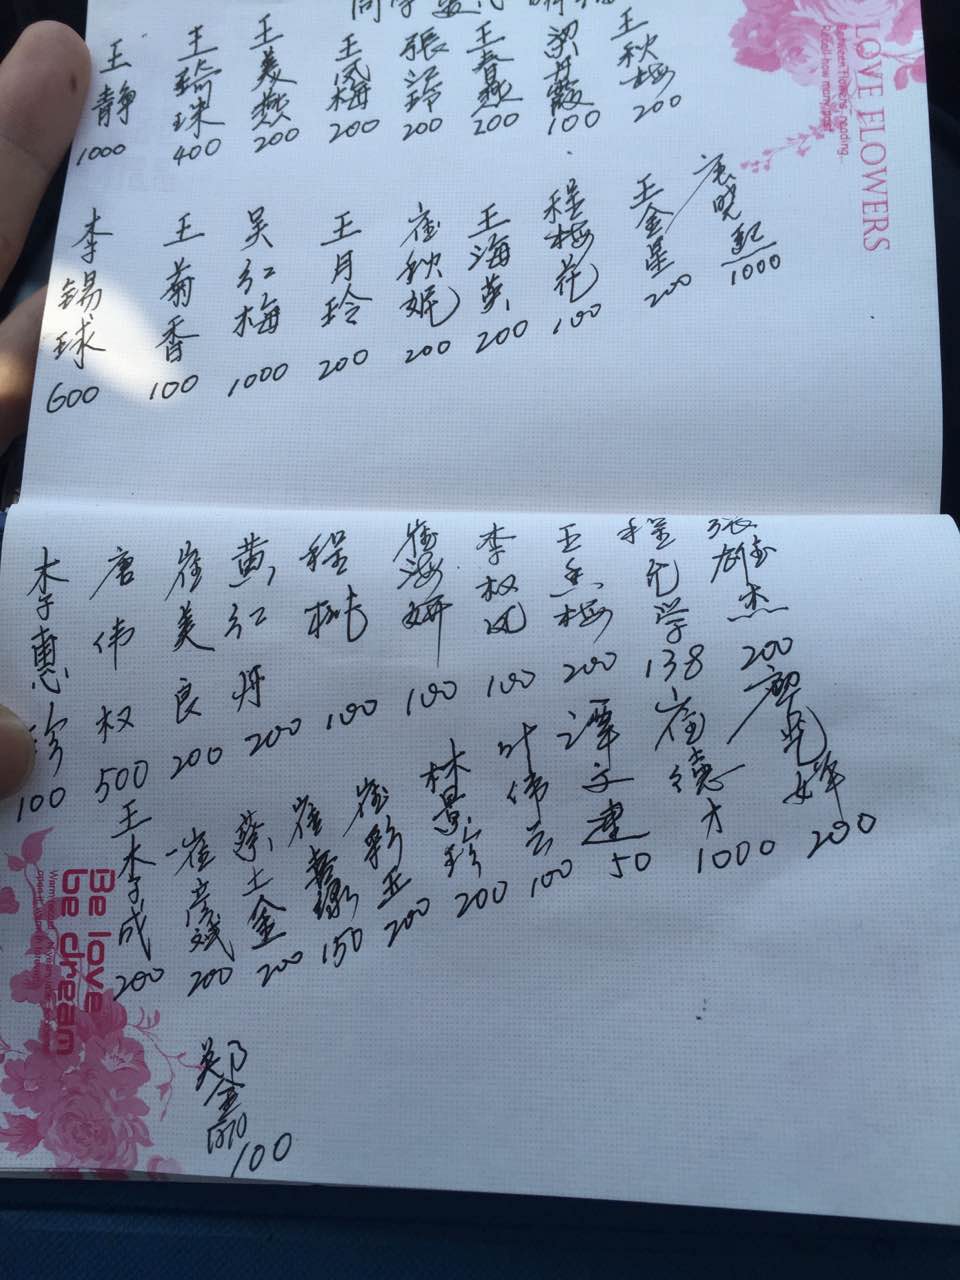 王静 1000
王琦珠 400
王美燕 200
王凤梅 200
張江玲 200
王春燕 200
梁丹霞 100
王秋梅 200
李锡球 600
王菊香 100
吴红梅 1000
王月玲 200
崔秋妮 200
王海英 200
程梅花 100
王金星 200
1000
李惠珍 100
唐伟权 500
崔美良 200
黄红丹 200
程桃 100
崔海妍 100
李权凤 100
200
程允学 138
張雄杰 200
王李成 200
崔彦斌 200
蔡土金 200
150
崔彩玉 200
林景珍 200
叶伟云 100
谭文建 50
崔德才 1000
200
100
LOVE FLOWERS
Between Flowers' reading..
Recall how many past
Be love
be dream